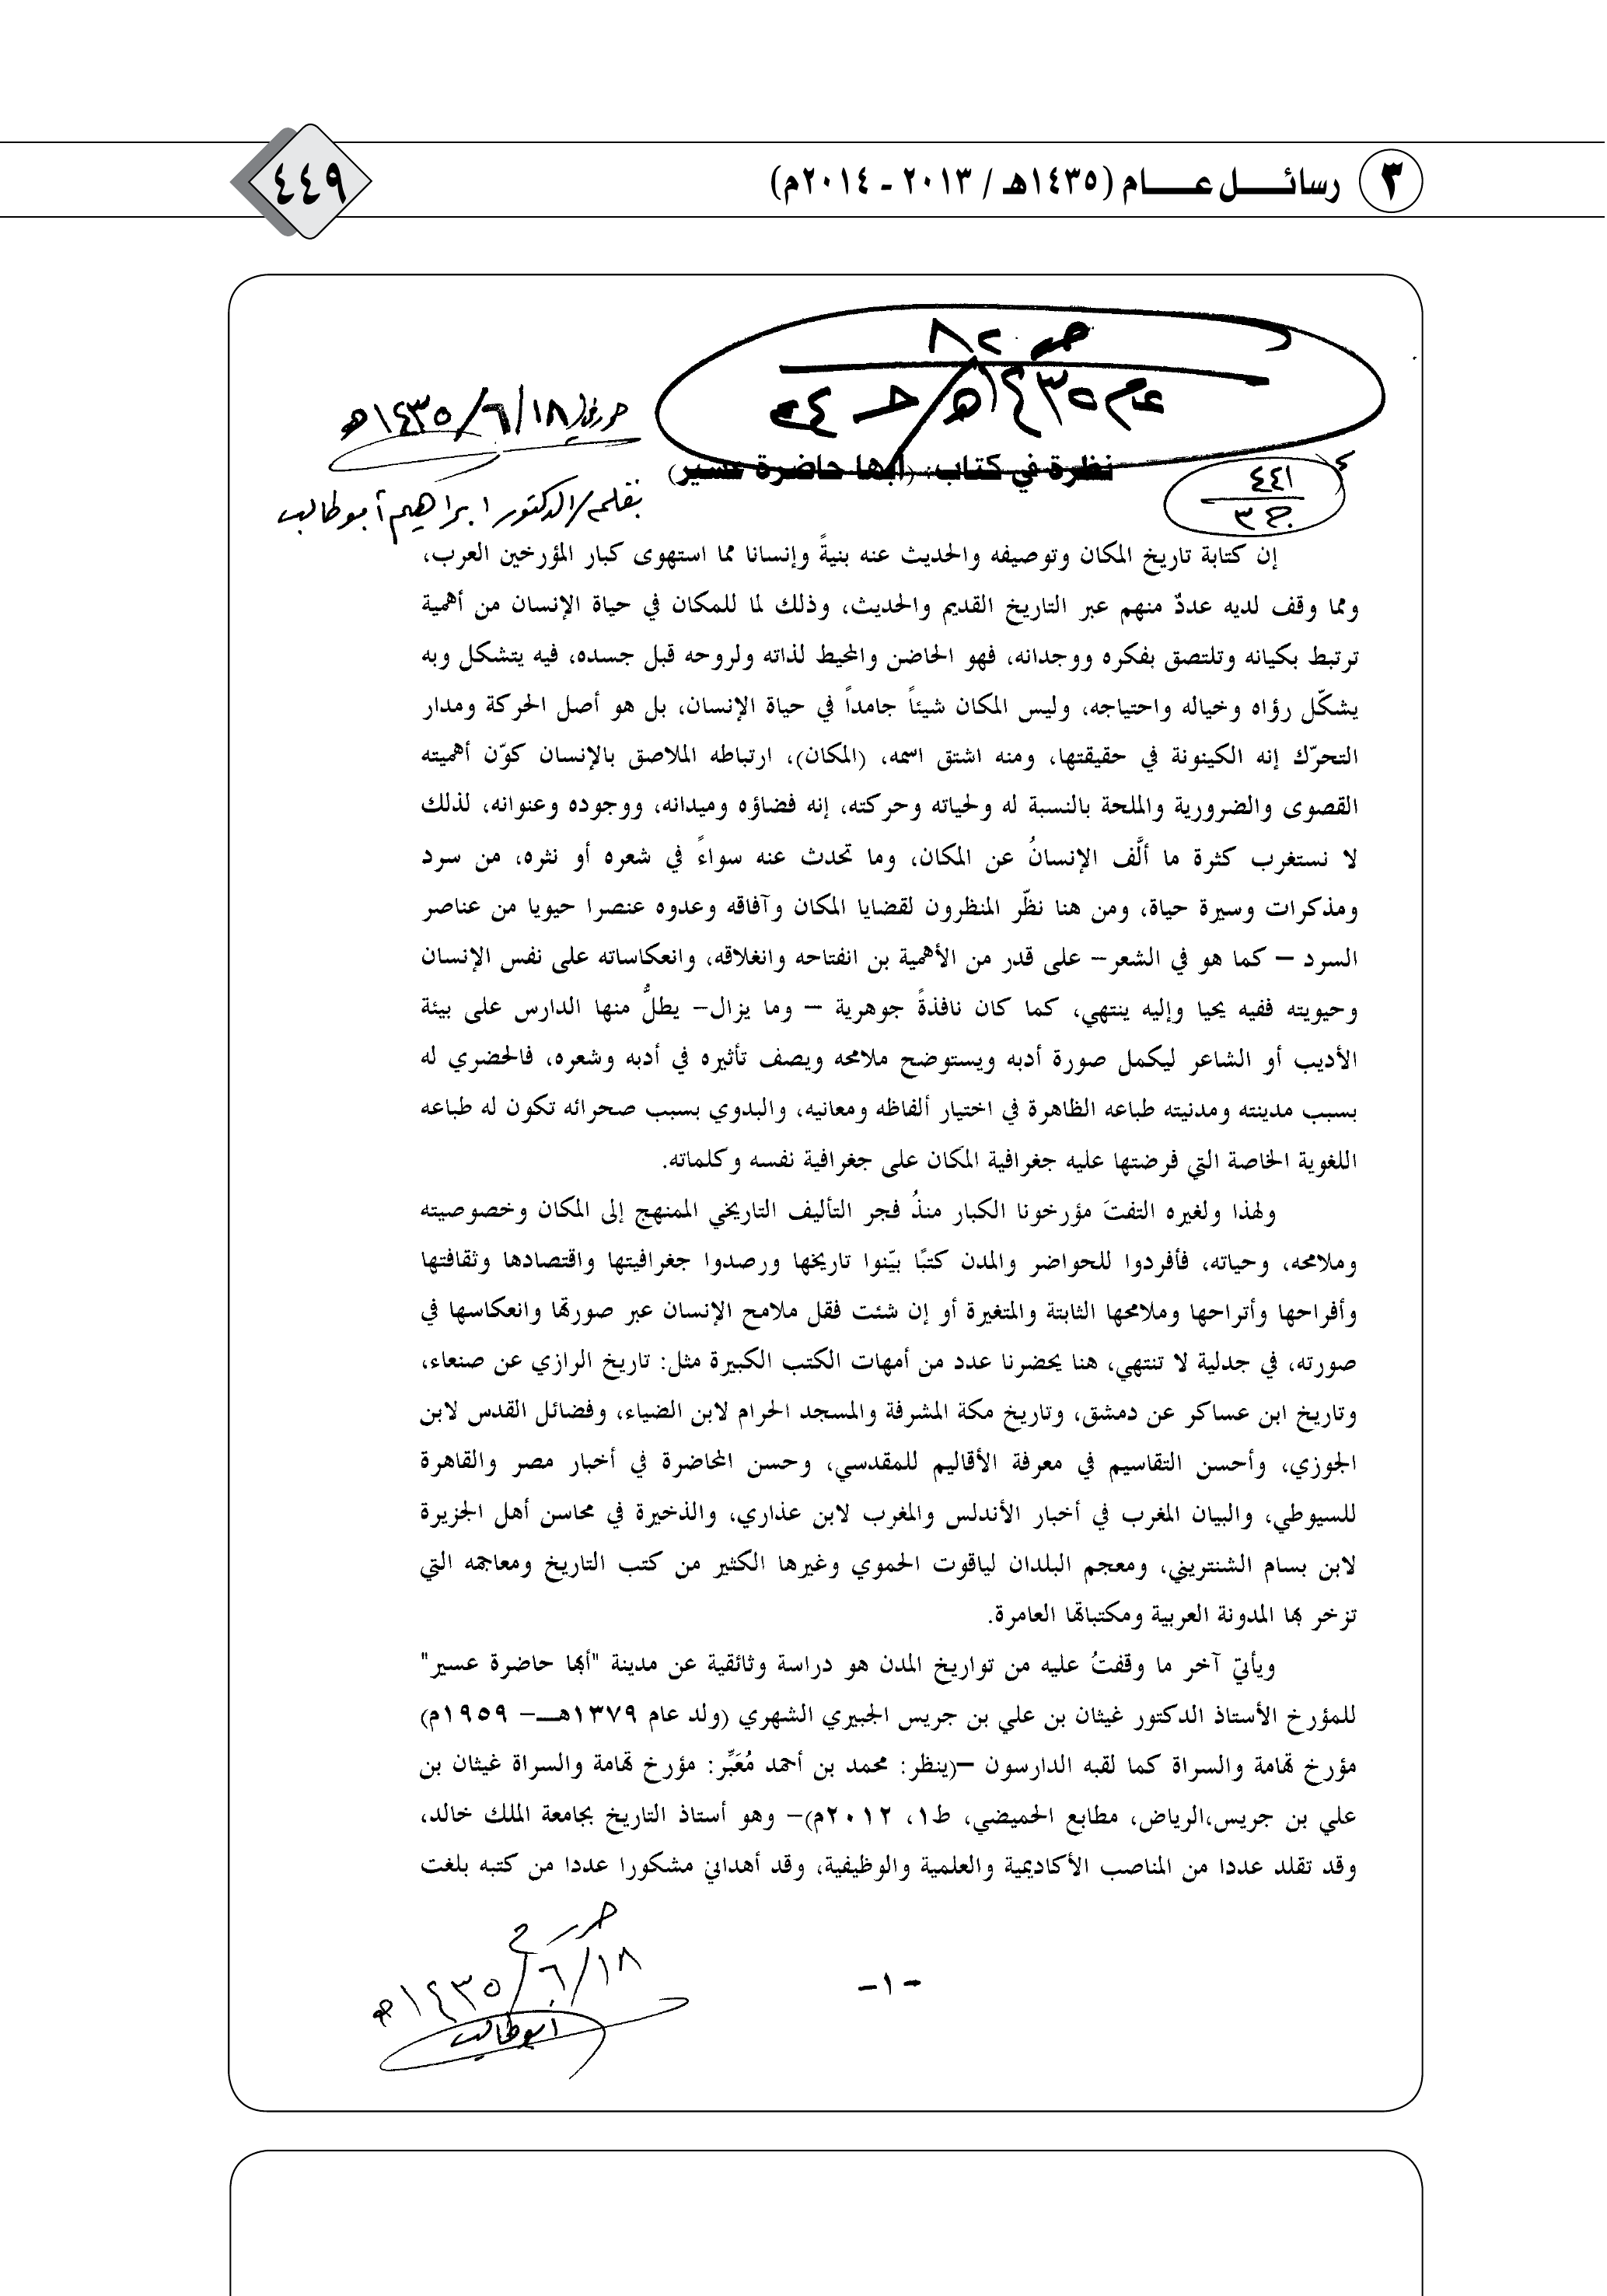 ٣ رسائـــــل عـــــام (١٤٣٥هـ / ٢٠١٣ - ٢٠١٤م)
٤٤٩
صـ ٢٨
عام ١٤٣٥هـ/
حرر في ١٨/٦/١٤٣٥هـ
نظرة في كتاب: (أبها حاضرة عسير)
٤٤١
ج٣
بقلم/ الدكتور ابراهيم أبو طالب
إن كتابة تاريخ المكان وتوصيفه والحديث عنه بنيةً وإنسانا مما استهوى كبار المؤرخين العرب،
ومما وقف لديه عددٌ منهم عبر التاريخ القديم والحديث، وذلك لما للمكان في حياة الإنسان من أهمية
ترتبط بكيانه وتلتصق بفكره ووجدانه، فهو الحاضن والمحيط لذاته ولروحه قبل جسده، فيه يتشكل وبه
يشكّل رؤاه وخياله واحتياجه، وليس المكان شيئاً جامداً في حياة الإنسان، بل هو أصل الحركة ومدار
التحرّك إنه الكينونة في حقيقتها، ومنه اشتق اسمه، (المكان)، ارتباطه الملاصق بالإنسان كوّن أهميته
القصوى والضرورية والملحة بالنسبة له ولحياته وحركته، إنه فضاؤه وميدانه، ووجوده وعنوانه، لذلك
لا نستغرب كثرة ما ألَّف الإنسانُ عن المكان، وما تحدث عنه سواءً في شعره أو نثره، من سرد
ومذكرات وسيرة حياة، ومن هنا نظّر المنظرون لقضايا المكان وآفاقه وعدوه عنصرا حيويا من عناصر
السرد – كما هو في الشعر– على قدر من الأهمية بن انفتاحه وانغلاقه، وانعكاساته على نفس الإنسان
وحيويته ففيه يحيا وإليه ينتهي، كما كان نافذةً جوهرية – وما يزال– يطلُّ منها الدارس على بيئة
الأديب أو الشاعر ليكمل صورة أدبه ويستوضح ملامحه ويصف تأثيره في أدبه وشعره، فالحضري له
بسبب مدينته ومدنيته طباعه الظاهرة في اختيار ألفاظه ومعانيه، والبدوي بسبب صحرائه تكون له طباعه
اللغوية الخاصة التي فرضتها عليه جغرافية المكان على جغرافية نفسه وكلماته.
ولهذا ولغيره التفتَ مؤرخونا الكبار منذُ فجر التأليف التاريخي الممنهج إلى المكان وخصوصيته
وملامحه، وحياته، فأفردوا للحواضر والمدن كتبًا بيّنوا تاريخها ورصدوا جغرافيتها واقتصادها وثقافتها
وأفراحها وأتراحها وملامحها الثابتة والمتغيرة أو إن شئت فقل ملامح الإنسان عبر صورتها وانعكاسها في
صورته، في جدلية لا تنتهي، هنا يحضرنا عدد من أمهات الكتب الكبيرة مثل: تاريخ الرازي عن صنعاء،
وتاريخ ابن عساكر عن دمشق، وتاريخ مكة المشرفة والمسجد الحرام لابن الضياء، وفضائل القدس لابن
الجوزي، وأحسن التقاسيم في معرفة الأقاليم للمقدسي، وحسن المحاضرة في أخبار مصر والقاهرة
للسيوطي، والبيان المغرب في أخبار الأندلس والمغرب لابن عذاري، والذخيرة في محاسن أهل الجزيرة
لابن بسام الشنتريني، ومعجم البلدان لياقوت الحموي وغيرها الكثير من كتب التاريخ ومعاجمه التي
تزخر بها المدونة العربية ومكتباتها العامرة.
ويأتي آخر ما وقفتُ عليه من تواريخ المدن هو دراسة وثائقية عن مدينة "أبها حاضرة عسير"
للمؤرخ الأستاذ الدكتور غيثان بن علي بن جريس الجبيري الشهري (ولد عام ١٣٧٩هــ– ١٩٥٩م)
مؤرخ تهامة والسراة كما لقبه الدارسون –(ينظر: محمد بن أحمد مُعَبِّر: مؤرخ تهامة والسراة غيثان بن
علي بن جريس،الرياض، مطابع الحميضي، ط١، ٢٠١٢م)– وهو أستاذ التاريخ بجامعة الملك خالد،
وقد تقلد عددا من المناصب الأكاديمية والعلمية والوظيفية، وقد أهداني مشكورا عددا من كتبه بلغت
حرر في
١٨/٦/١٤٣٥هـ
أبو طالب
-١-